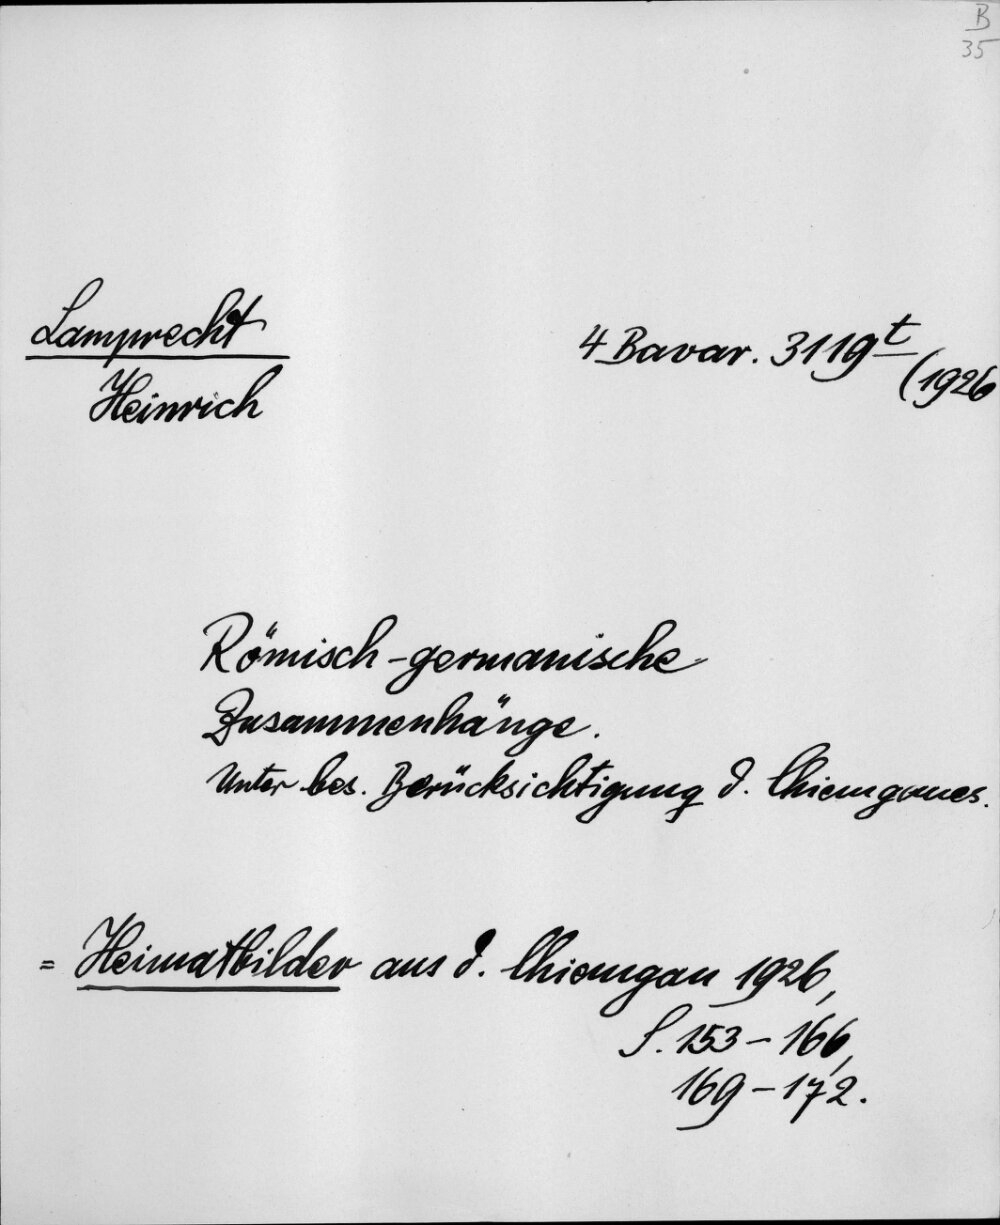 B
35
Lamprecht
Heinrich
4 Bavar. 3119 t
(1926
Römisch-germanische
Zusammenhänge.
Unter bes. Berücksichtigung d. Chiemgaues.
= Heimatbilder aus d. Chiemgau 1926,
S. 153-166,
169-172.